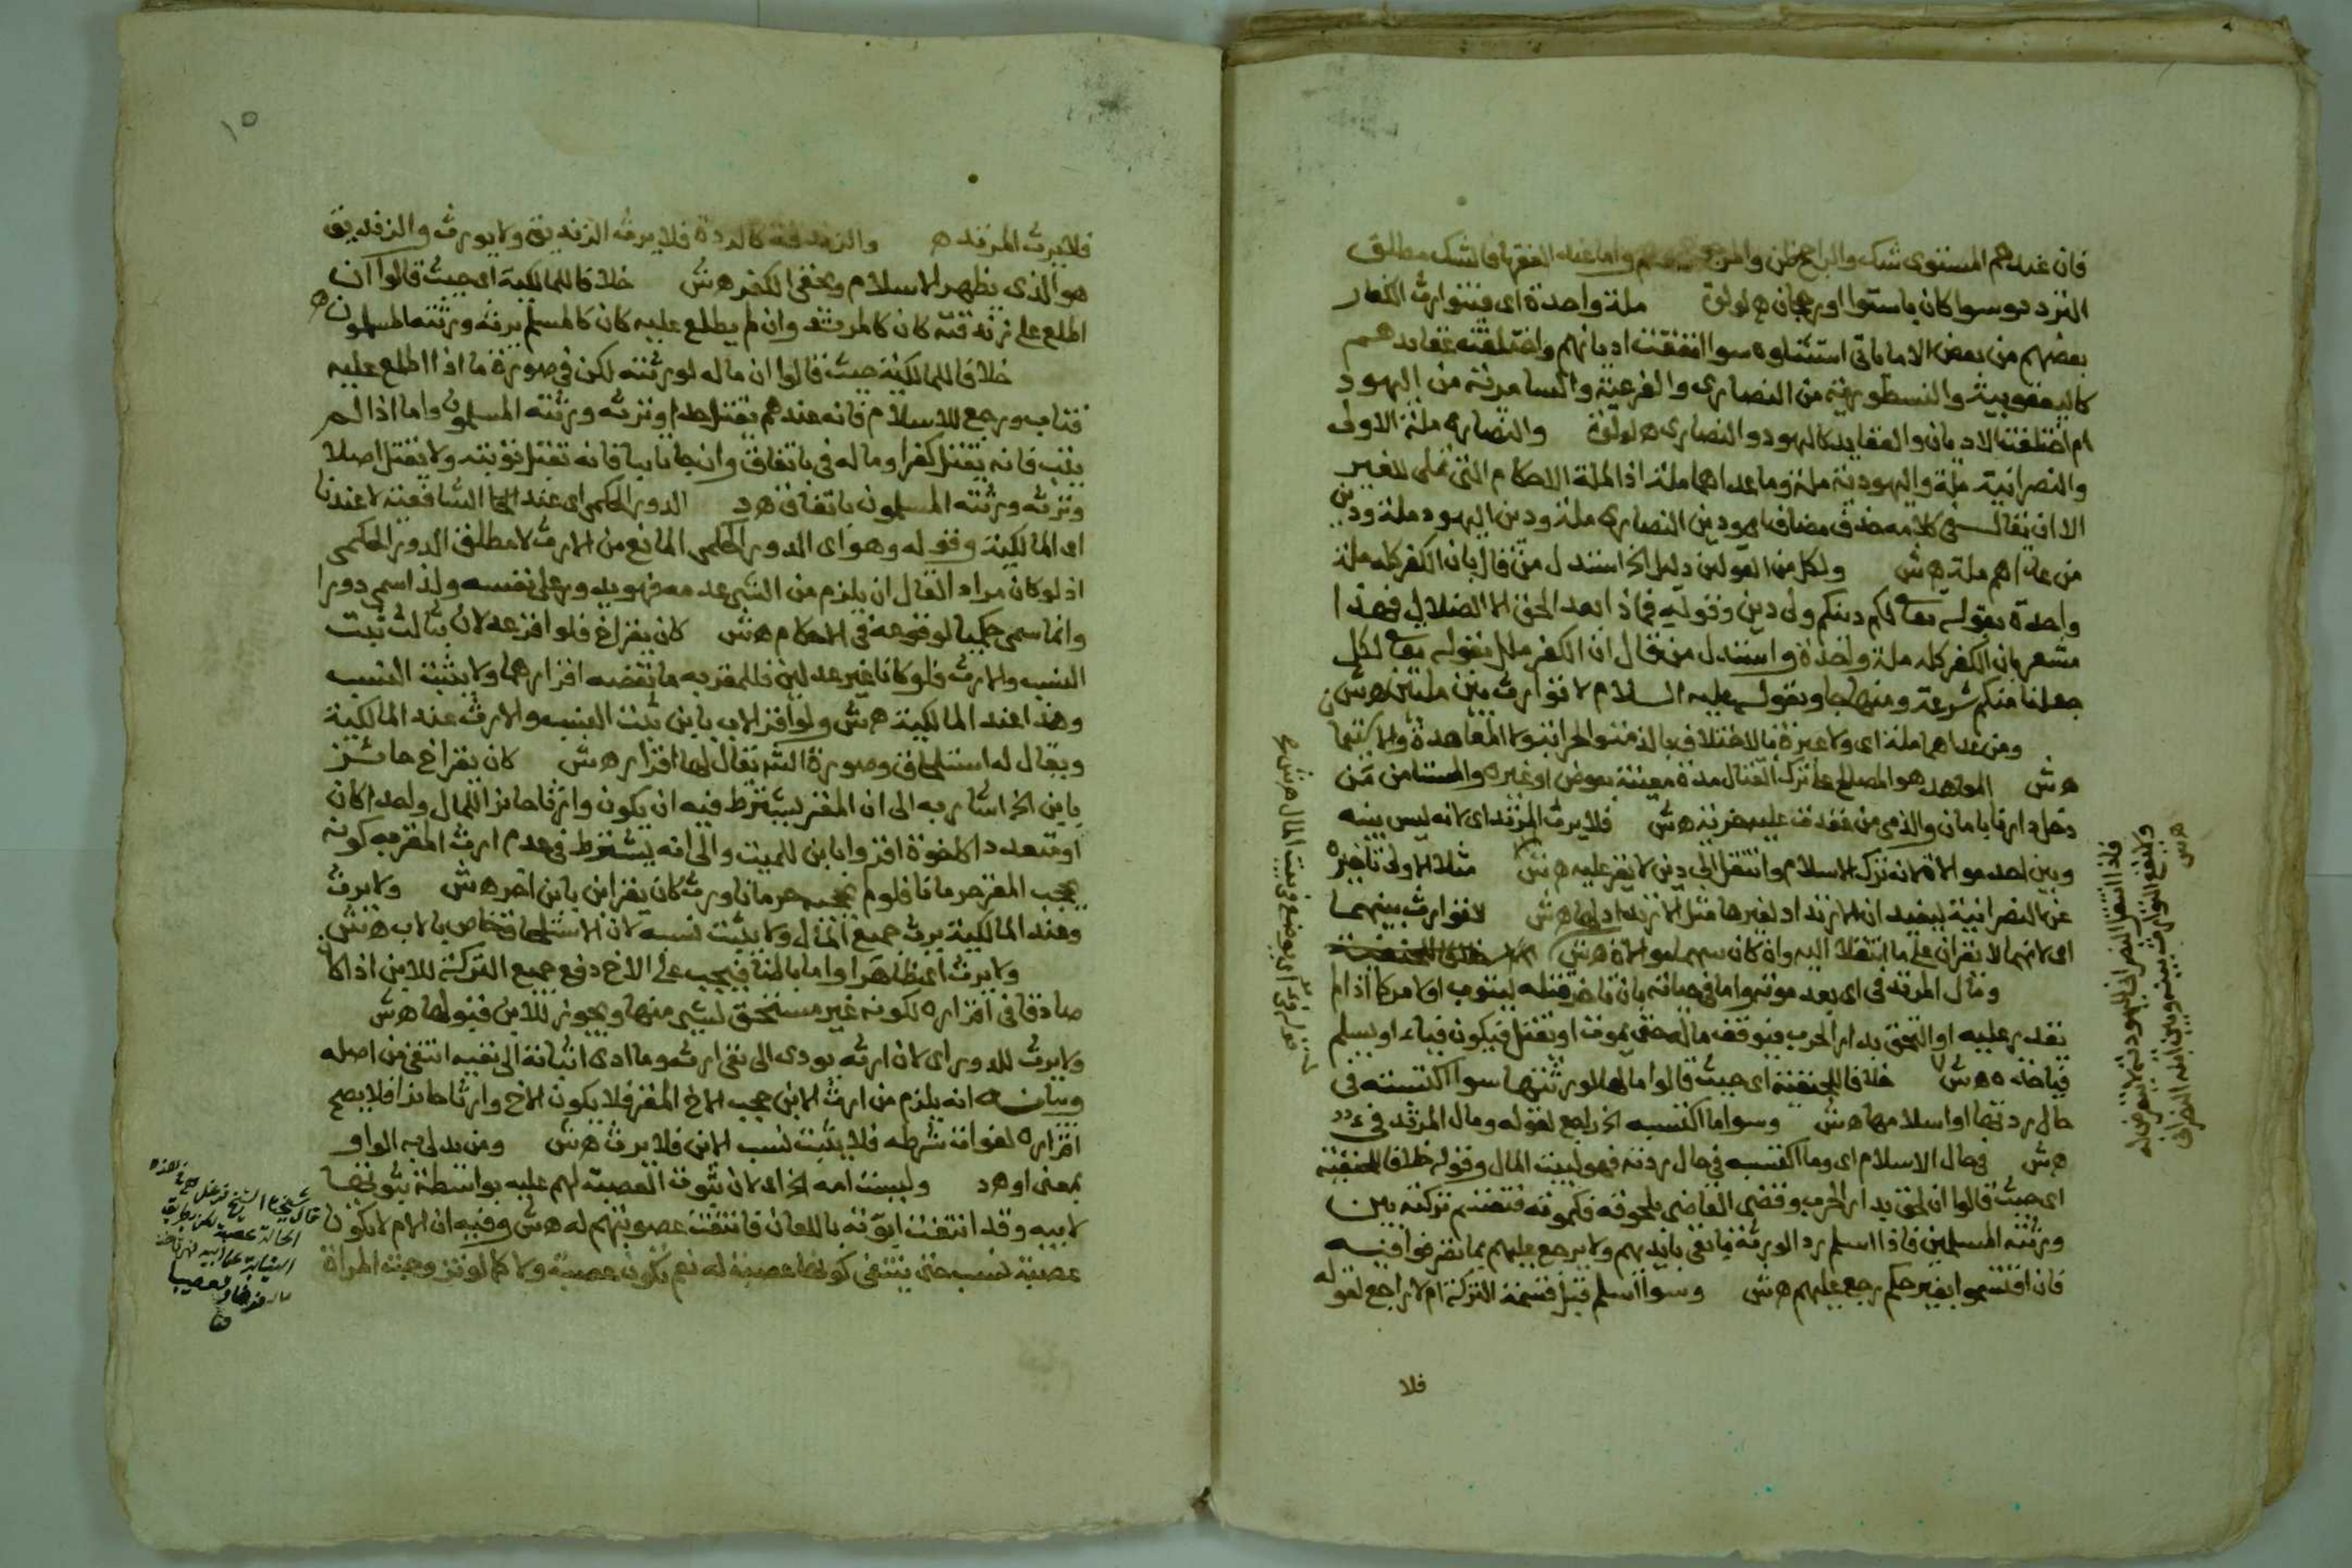 فان عندهم المستوى شك والراجح ظن والمرجوح وهم واما عند الفقها فالشك مطلق
التردد سوا كان باستوا او رجحان ه لولو ملة واحدة اى فيتوارث الكفار
بعضهم من بعض الا ما ياتى استثناوه سوا اتفقت اديانهم واختلفت عقايدهم
كاليعقوبية والنسطورية من النصارى والفرعية والسامرية من اليهود
ام اختلفت الاديان والعقايد كاليهود والنصارى ه لولو والنصارى ملة الاولى
والنصرانية ملة واليهودية ملة وما عداهما ملة اذ الملة الاحكام التى تملى للغير
الا ان يقال فى كلامه حذف مضاف اى ودين النصارى ملة ودين اليهود ملة ودين
من عداهم ملة ه ش ولكل من القولين دليل الخ استدل من قال بان الكفر كله ملة
واحدة بقوله تعالى لكم دينكم ولى دين وقوله فماذا بعد الحق الا الضلال فهذا
مشعر بان الكفر كله ملة واحدة واستدل من قال ان الكفر ملل بقوله تعالى لكل
جعلنا منكم شرعة ومنهاجا وبقوله عليه السلام لا توارث بين ملتين ه ش
ومن عداهما ملة اى ولا عبرة بالاختلاف بالذمة والحرابة ولا المعاهدة
ه ش المعاهد هو المصالح على ترك القتال مدة معينة بعوض او غيره والمستامن من
دخل دارنا بامان والذمى من عقدت عليه جزية ه ش فلا يرث المرتد اى لانه ليس بينه
وبين احد موالاة لانه ترك الاسلام وانتقل الى دين لا يقر عليه ه ش مثلا الاولى تاخيره
عن النصرانية ليفيد ان الارتداد لغيرها مثل الارتداد لها ه ش لا توارث بينهما
اى لانهما لا يقران على ما انتقلا اليه وان كان بينهما موالاة ه ش
ومال المرتد فى اى بعد موته واما فى حياته بان تاخر قتله ليتوب او لامر كما اذا لم
نقدر عليه او التحق بدار الحرب فتوقف ماله حتى يموت او يقتل فيكون فيا او يسلم
فياخذه ه ش خلافا للحنفية اى حيث قالوا مالها لورثتها سوا اكتسبته فى
حال ردتها او اسلامها ه ش وسوا ما اكتسبه الخ راجع لقوله ومال المرتد فى ه د
ه ش فى حال الاسلام اى وما اكتسبه فى حال ردته فهو لبيت المال وقوله خلافا للحنفية
اى حيث قالوا ان لحق بدار الحرب وقضى القاضى بلحوقه فكموته فتقسم تركته بين
ورثته المسلمين فاذا اسلم رد الورثة ما بقى بايديهم ولا يرجع عليهم بما تصرفوا فيه
فان اقتسموا بغير حكم رجع عليهم ه ش وسوا اسلم قبل قسمة التركة ام لا راجع لقوله
فلا
فاذا انتقل النصرانى لليهودية لا يقر
ولا توارث بينه وبين ابنه النصرانى
ه ش
١٥
فلا يرث المرتد ه والزندقة كالردة فلا يرث الزنديق ولا يورث والزنديق
هو الذى يظهر الاسلام ويخفى الكفر ه ش خلافا للمالكية اى حيث قالوا ان
اطلع على زندقته كان كالمرتد وان لم يطلع عليه كان كالمسلم يرثه ورثته المسلمون ه
خلافا للمالكية حيث قالوا ان ماله لورثته لكن فى صورة ما اذا اطلع عليه
فتاب ورجع للاسلام فانه عندهم يقتل حدا وترثه ورثته المسلمون واما اذا لم
يتب فانه يقتل كفرا وماله فى باتفاق وان جا تايبا فانه تقبل توبته ولا يقتل اصلا
وترثه ورثته المسلمون باتفاق ه د الدور الحكمى اى عند الشافعية لا عندنا
اى المالكية وقوله وهو اى الدور الحكمى المانع من الارث لا مطلق الدور الحكمى
اذ لو كان مراد القال ان يلزم من الشى عدمه فهو يدور على نفسه ولذا سمى دورا
وانما سمى حكميا لوقوعه فى الاحكام ه ش كان يقر اخ فلو اقر عدلان بثالث ثبت
النسب والارث فلو كانا غير عدلين فللمقر به ما نقصه اقرارهما ولا يثبت النسب
وهذا عند المالكية ه ش ولو اقر الاب بابن ثبت النسب والارث عند المالكية
ويقال له استلحاق وصورة الشـ يقال لها اقرار ه ش كان يقر اخ حائز
بابن الخ اشار به الى ان المقر يشترط فيه ان يكون وارثا حائزا للمال واحدا كان
او متعددا كاخوة اقروا بابن للميت والى انه يشترط فى عدم ارث المقر به كونه
يحجب المقر حرمانا فلو لم يحجبه حرمانا ورث كان يقر ابن بابن اخر ه ش ولا يرث
وعند المالكية يرث جميع المال ولا يثبت نسبه لان الاستلحاق خاص بالاب ه ش
ولا يرث اى ظاهرا واما باطنا فيجب على الاخ دفع جميع التركة للابن اذا كان
صادقا فى اقراره لكونه غير مستحق لشى منها ويجوز للابن قبولها ه ش
ولا يرث للدور اى لان ارثه يودى الى نفى ارثه وما ادى اثباته الى نفيه انتفى من اصله
وبيانه انه يلزم من ارث الابن حجب الاخ المقر فلا يكون الاخ وارثا حائزا فلا يصح
اقراره لفوات شرطه فلا يثبت نسب الابن فلا يرث ه ش ومن يدلى به الواو
بمعنى او ه د وليست امه الخ اى لان ثبوت العصبة لهم عليه بواسطة ثبوتها
لابيه وقد انتفت ابوته باللعان فانتفت عصوبتهم له ه ش وفيه ان الام لا يكون
عصبة نسب حتى ينتفى كونها عصبة له نعم تكون عصبة ولا كما لو تزوجت المراة